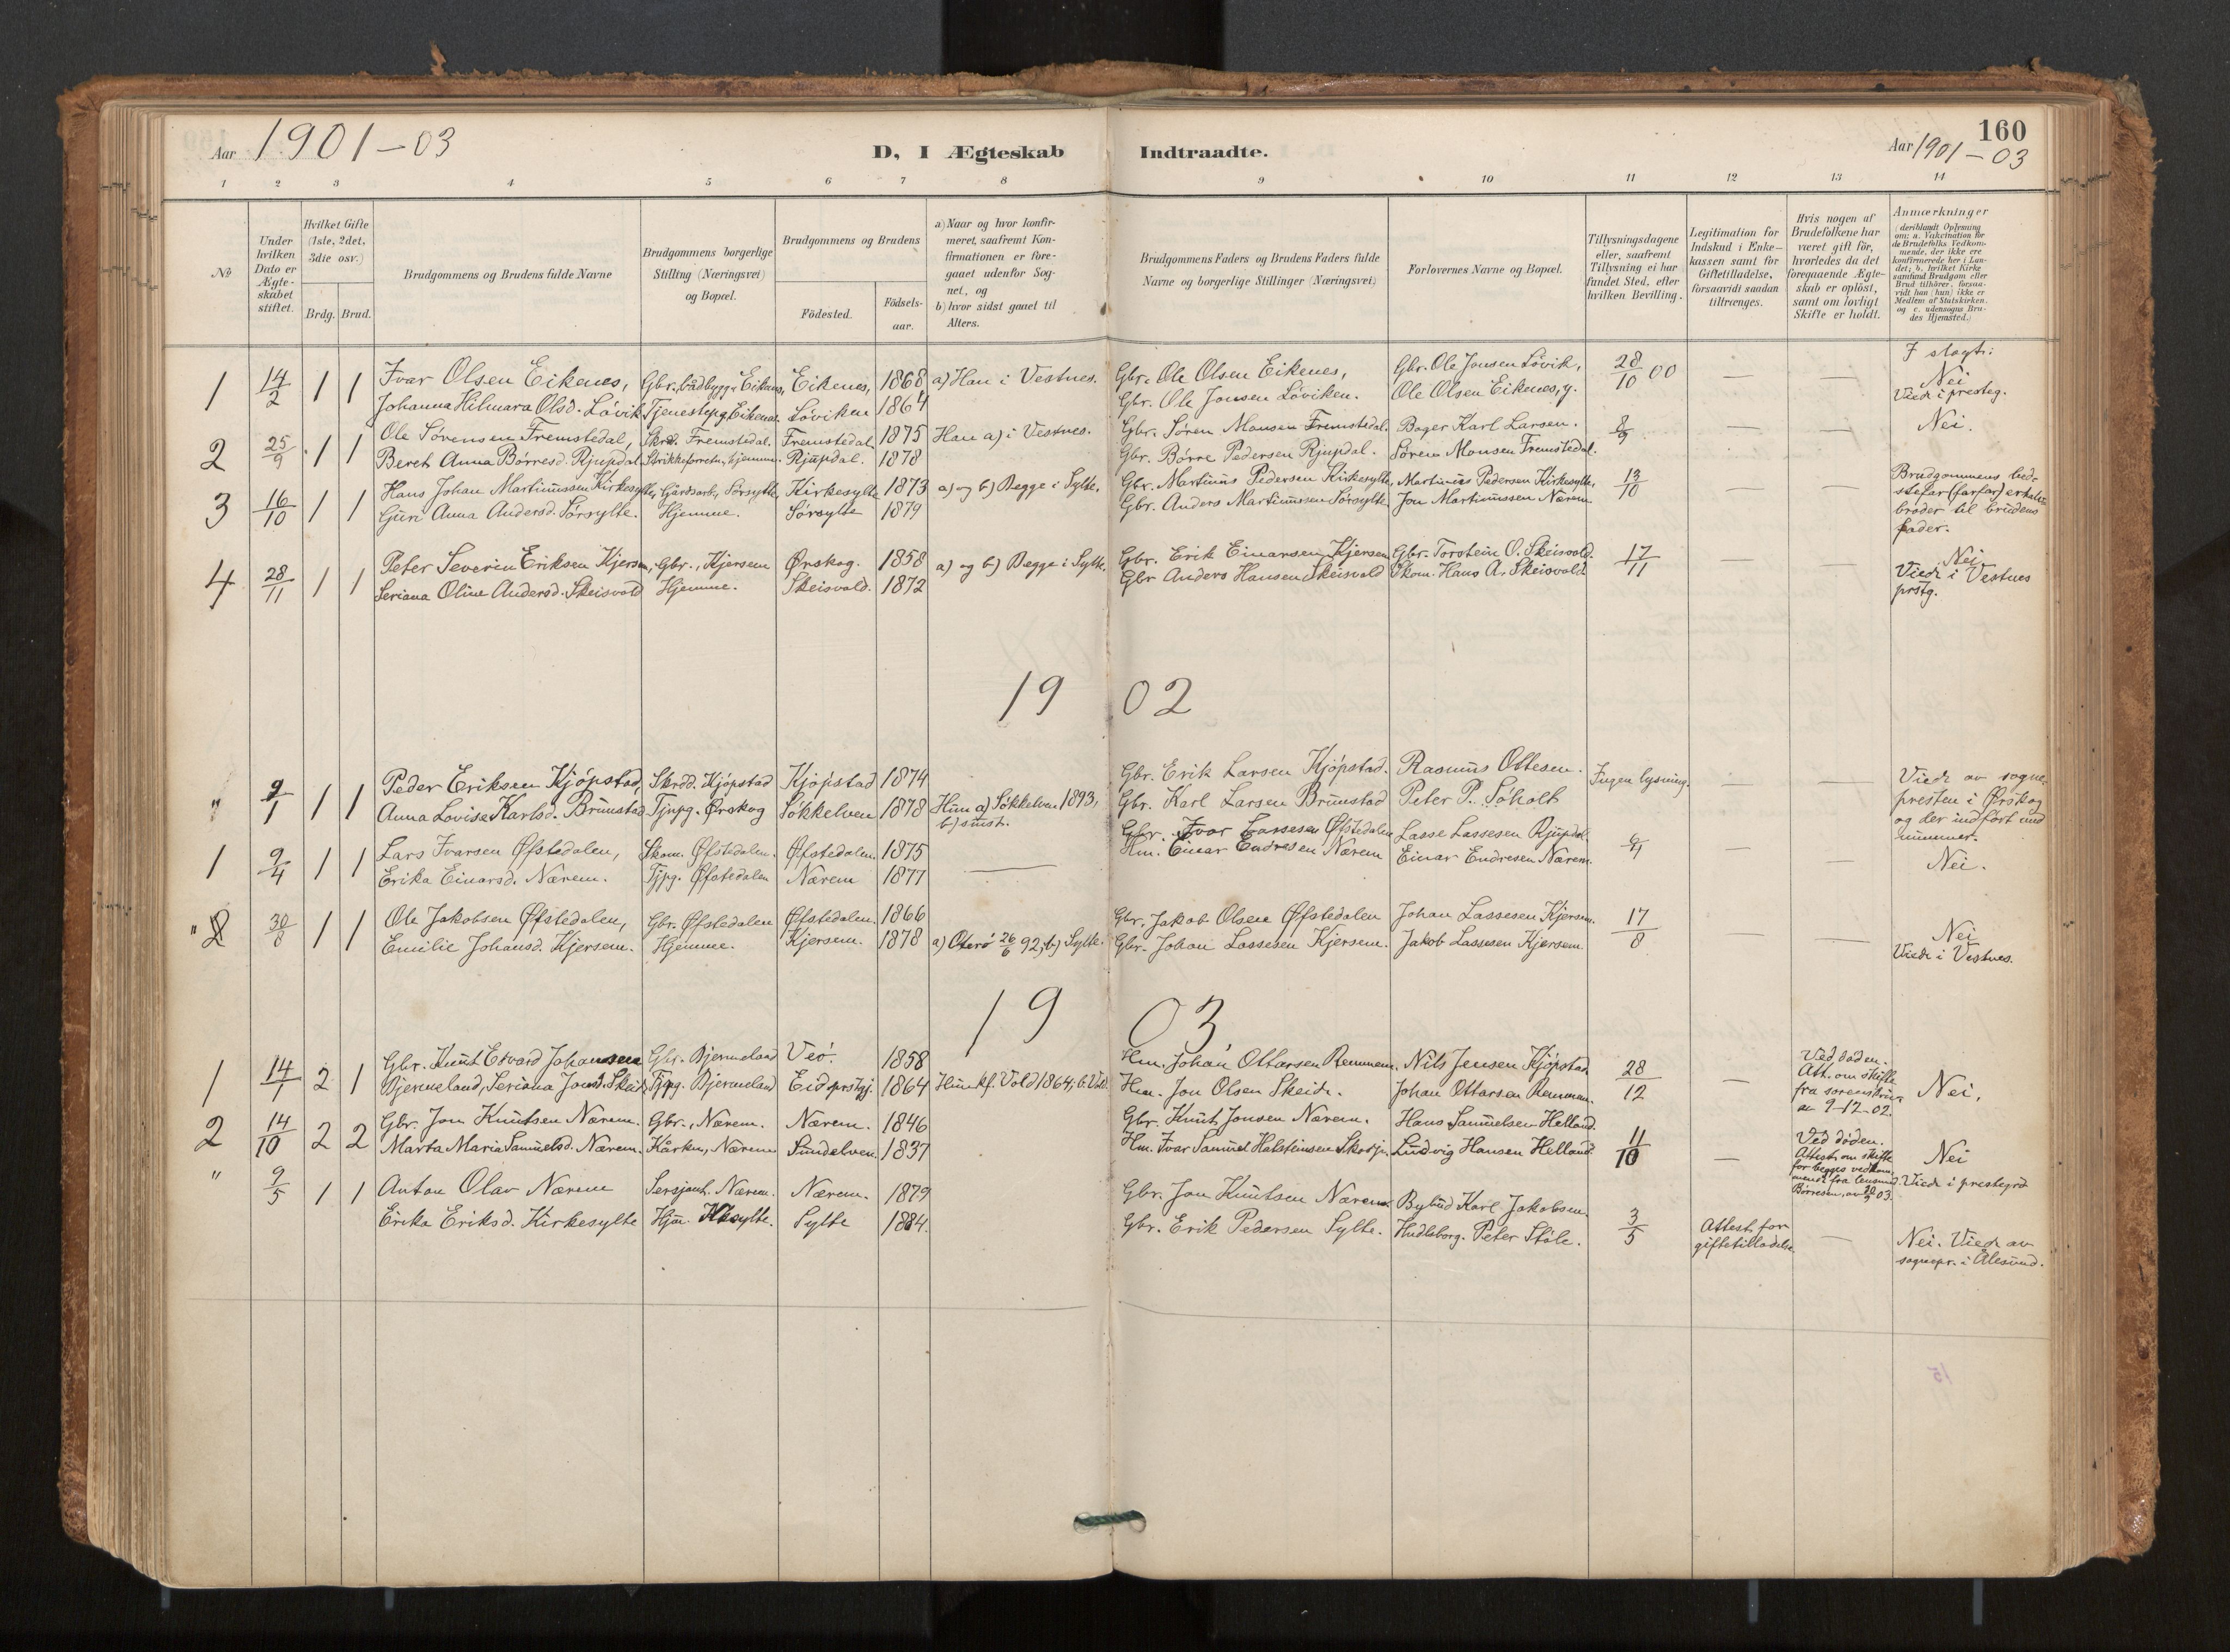 160
Aar 1901-03
D, I Ægteskab Indtraadte.
Aar 1901-03
1 2 3 4 5 6 7 8 9 10 11 12 13 14
No
Under hvilken Dato er Ægteskabet stiftet.
Hvilket Gifte (1ste, 2det, 3die osv.)
Brdg. Brud.
Brudgommens og Brudens fulde Navne
Brudgommens borgerlige Stilling (Næringsvei) og Bopæl.
Brudgommens og Brudens
Födested. Födsels-aar.
a) Naar og hvor konfirmeret, saafremt Konfirmationen er foregaaet udenfor Sognet, og
b) hvor sidst gaaet til Alters.
Brudgommens Faders og Brudens Faders fulde Navne og borgerlige Stillinger (Næringsvei)
Forlovernes Navne og Bopæl.
Tillysningsdagene eller, saafremt Tillysning ei har fundet Sted, efter hvilken Bevilling.
Legitimation for Indskud i Enkekassen samt for Giftetilladelse, forsaavidt saadan tiltrænges.
Hvis nogen af Brudefolkene har været gift för, hvorledes da det foregaaende Ægteskab er oplöst, samt om lovligt Skifte er holdt.
Anmærkninger (deriblandt Oplysning om: a. Vakcination for de Brudefolks Vedkommende, der ikke ere konfirmerede her i Landet; b. hvilket Kirkesamfund Brudgom eller Brud tilhörer, forsaavidt han (hun) ikke er Medlem af Statskirken. og c. udensogns Brudes Hjemsted.)
1 14/2 1 1 Ivar Olsen Eikenes, Gbr., bådbygg. Eikenes, Eikenes, 1868 a) Han i Vestnes. Gbr. Ole Olsen Eikenes, Gbr. Ole Jonsen Lövik, 28/10 00 — — I slagt: Nei
Johanna Hilmara Olsd. Lövik Tjenestepg. Eikenes. Löviken 1864 Gbr. Ole Jonsen Löviken. Ole Olsen Eikenes, y. Viede i presteg.
2 25/9 1 1 Ole Sörensen Fremstedal, Skrd. Fremstedal. Fremstedal 1875 Han a) i Vestnes. Gbr. Sören Monsen Fremstedal. Bager Karl Larsen. 8/9 — — Nei.
Beret Anna Börresd. Rjupdal Strikkeforretn. hjemme. Rjupdal. 1878 Gbr. Börre Pedersen Rjupdal. Sören Monsen Fremstedal.
3 16/10 1 1 Hans Johan Martinussen Kirkesylte, Gårdsarb., Sörsylte, Kirkesylte 1873 a) og b) Begge i Sylte. Gbr. Martinus Pedersen Kirkesylte, Martinus Pedersen Kirkesylte, 13/10 — — Brudgommens bedstefar (farfar) er halvbroder til brudens fader.
Guri Anna Andersd. Sörsylte. Hjemme. Sörsylte 1879 Gbr. Anders Martinussen Sörsylte Jon Martinussen Nærem
4 28/11 1 1 Peter Severin Eriksen Kjersem, Gbr., Kjersem Ørskog. 1858 a) og b) Begge i Sylte. Gbr. Erik Einarsen Kjersem Gbr. Torstein O. Skeisvold. 17/11 — — Nei.
Seriana Oline Andersd. Skeisvold Hjemme. Skeisvold. 1872 Gbr Anders Hansen Skeisvold Skom. Hans A. Skeisvold Viede i Vestnes prstg.
1902
" 9/1 1 1 Peder Eriksen Kjöpstad, Skrdd. Kjöpstad Kjöpstad 1874 Gbr. Erik Larsen Kjöpstad. Rasmus Ottesen. Ingen lysning. — — Viede av sognepresten i Ørskog og der indfört und nummer.
Anna Lovise Karlsd. Brunstad Tjnpg. Ørskog Sökkelven 1878 Hun a) Sökkelven 1893, b) smst. Gbr. Karl Larsen Brunstad Peter P. Söholt
1 9/4 1 1 Lars Ivarsen Øfstedalen, Skom. Øfstedalen. Øfstedalen 1875 — Gbr. Ivar Lassesen Øfstedalen Lasse Lassesen Rjupdal. 6/4 — — Nei.
Erika Einarsd. Nærem. Tjpg. Øfstedalen Nærem 1877 Hm. Einar Endresen Nærem Einar Endresen Nærem.
" 2 30/8 1 1 Ole Jakobsen Øfstedalen, Gbr. Øfstedalen Øfstedalen. 1866 Gbr. Jakob Olsen Øfstedalen Johan Lassesen Kjersem. 17/8 — — Nei
Emilie Johansd. Kjersem. Hjemme. Kjersem. 1878 a) Oterö 26/6 92, b) Sylte. Gbr. Johan Lassesen Kjersem. Jakob Lassesen Kjersem. Viede i Vestnes.
1903
1 14/1 2 1 Gbr. Knut Edvard Johansen Gbr. Bjermeland Veö. 1858 Hm. Johan Ottarsen Remmem. Nils Jensen Kjöpstad 28/12 — Ved döden. Att. om skifte fra sorenskriv. av 9-12-02. Nei.
Bjermeland, Seriana Jonsd. Skeide Tjpg. Bjermeland Eid prstgj. 1864 Hun kf. Vold 1864; Hm. Jon Olsen Skeide. Johan Ottarsen Remmem.
2 14/10 2 2 Gbr. Jon Knutsen Nærem. Gbr., Nærem. Nærem. 1846 Gbr. Knut Jonsen Nærem. Hans Samuelsen Helland. 11/10 — Ved döden. Attest om skifte for begges vedkommende fra lensmd. Börresen, av 03. Nei
Marta Maria Samuelsd. Nærem. Kårkn, Nærem Sundelven 1837 Hm. Ivar Samuel Halsteinsen Ludvig Hansen Helland.
" 9/5 1 1 Anton Olav Nærem Sersjant. Nærem. Nærem. 1879 Gbr. Jon Knutsen Nærem. Bybud Karl Jakobsen. 3/5 Attest for giftetilladelse — Viede i prestegrd
Erika Eriksd. Kirkesylte Hjm. Ksylte. Sylte 1884. Gbr. Erik Pedersen Sylte. Hndlsborg. Peter Stöle. Nei. Viede av sognepr. i Ålesund.
15